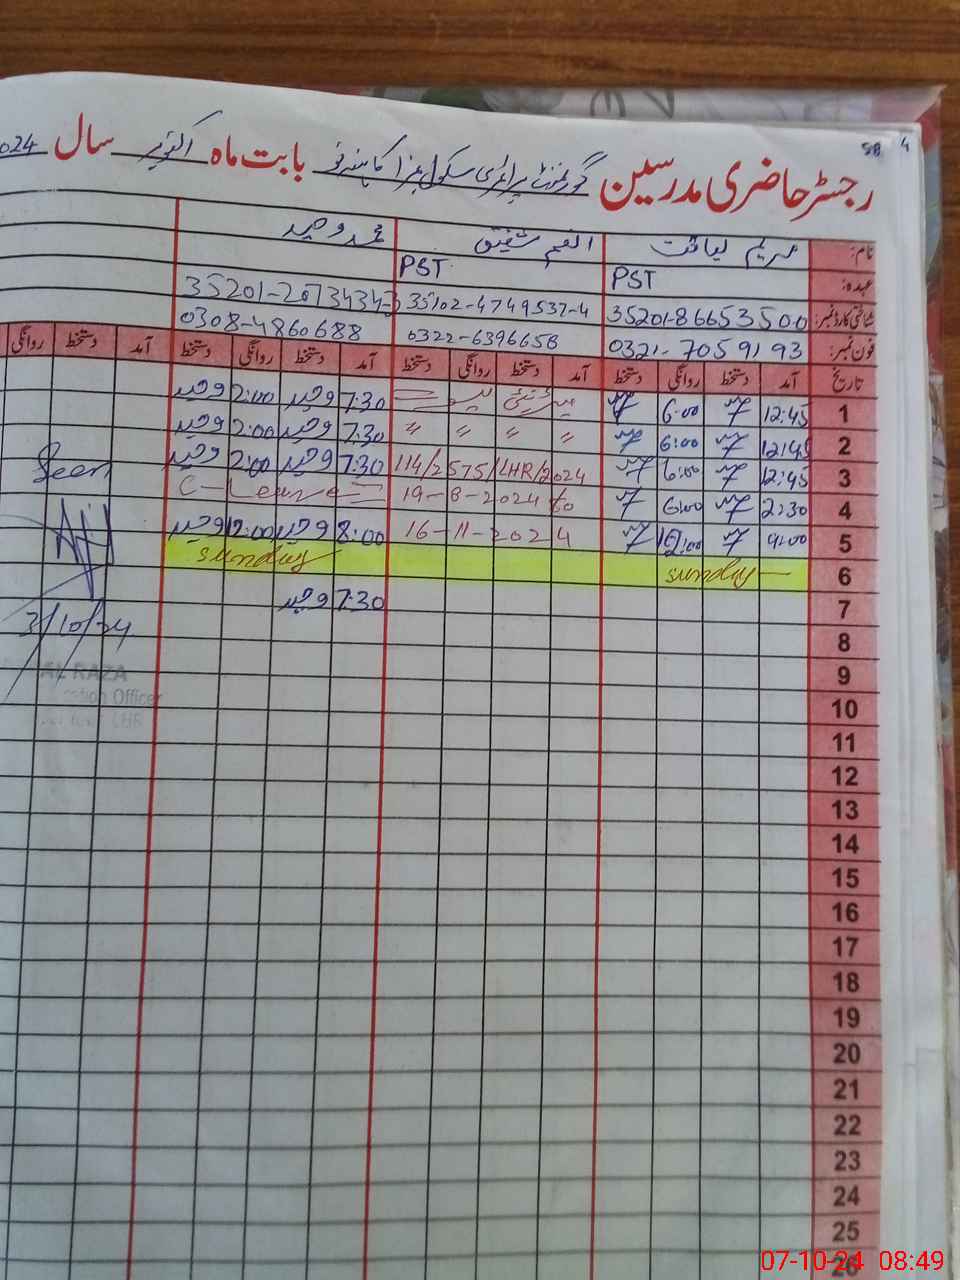 58 4
رجسٹر حاضری مدرسین گورنمنٹ پرائمری سکول ہزا کاہنہ نو بابت ماہ اکتوبر سال 024
نام: مریم لیاقت انعم شفیق محمد وحید
عہدہ: PST PST
شناختی کارڈ نمبر: 35201-8665350-0 35102-4749537-4 35201-2073434-3
فون نمبر: 0321-7059193 0322-6396658 0308-4860688
تاریخ آمد دستخط روانگی دستخط آمد دستخط روانگی دستخط آمد دستخط روانگی دستخط آمد دستخط روانگی
1 12:45 6:00 میٹرنٹی لیو 7:30 وحید 2:00 وحید
2 12:45 6:00 " " " " 7:30 وحید 2:00 وحید
3 12:45 6:00 114/2575/LHR/2024 7:30 وحید 2:00 وحید Seen
4 2:30 6:00 19-8-2024 to C-Leave
5 9:00 12:00 16-11-2024 8:00 وحید 12:00 وحید
6 sunday sunday
7 7:30 وحید
3/10/24
8
9
AL RAZA
10
cation Officer
LHR
11
12
13
14
15
16
17
18
19
20
21
22
23
24
25
26
07-10-24 08:49